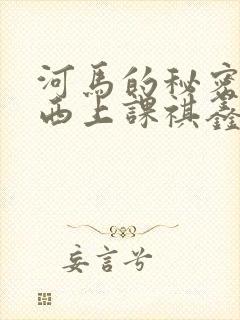 河馬的秘密
西上課祺鑫
妄言兮